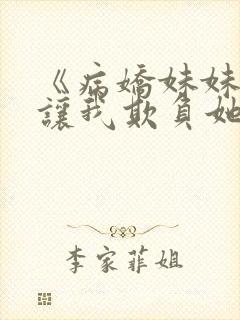 《病嬌妹妹
讓我欺負她
李家菲姐